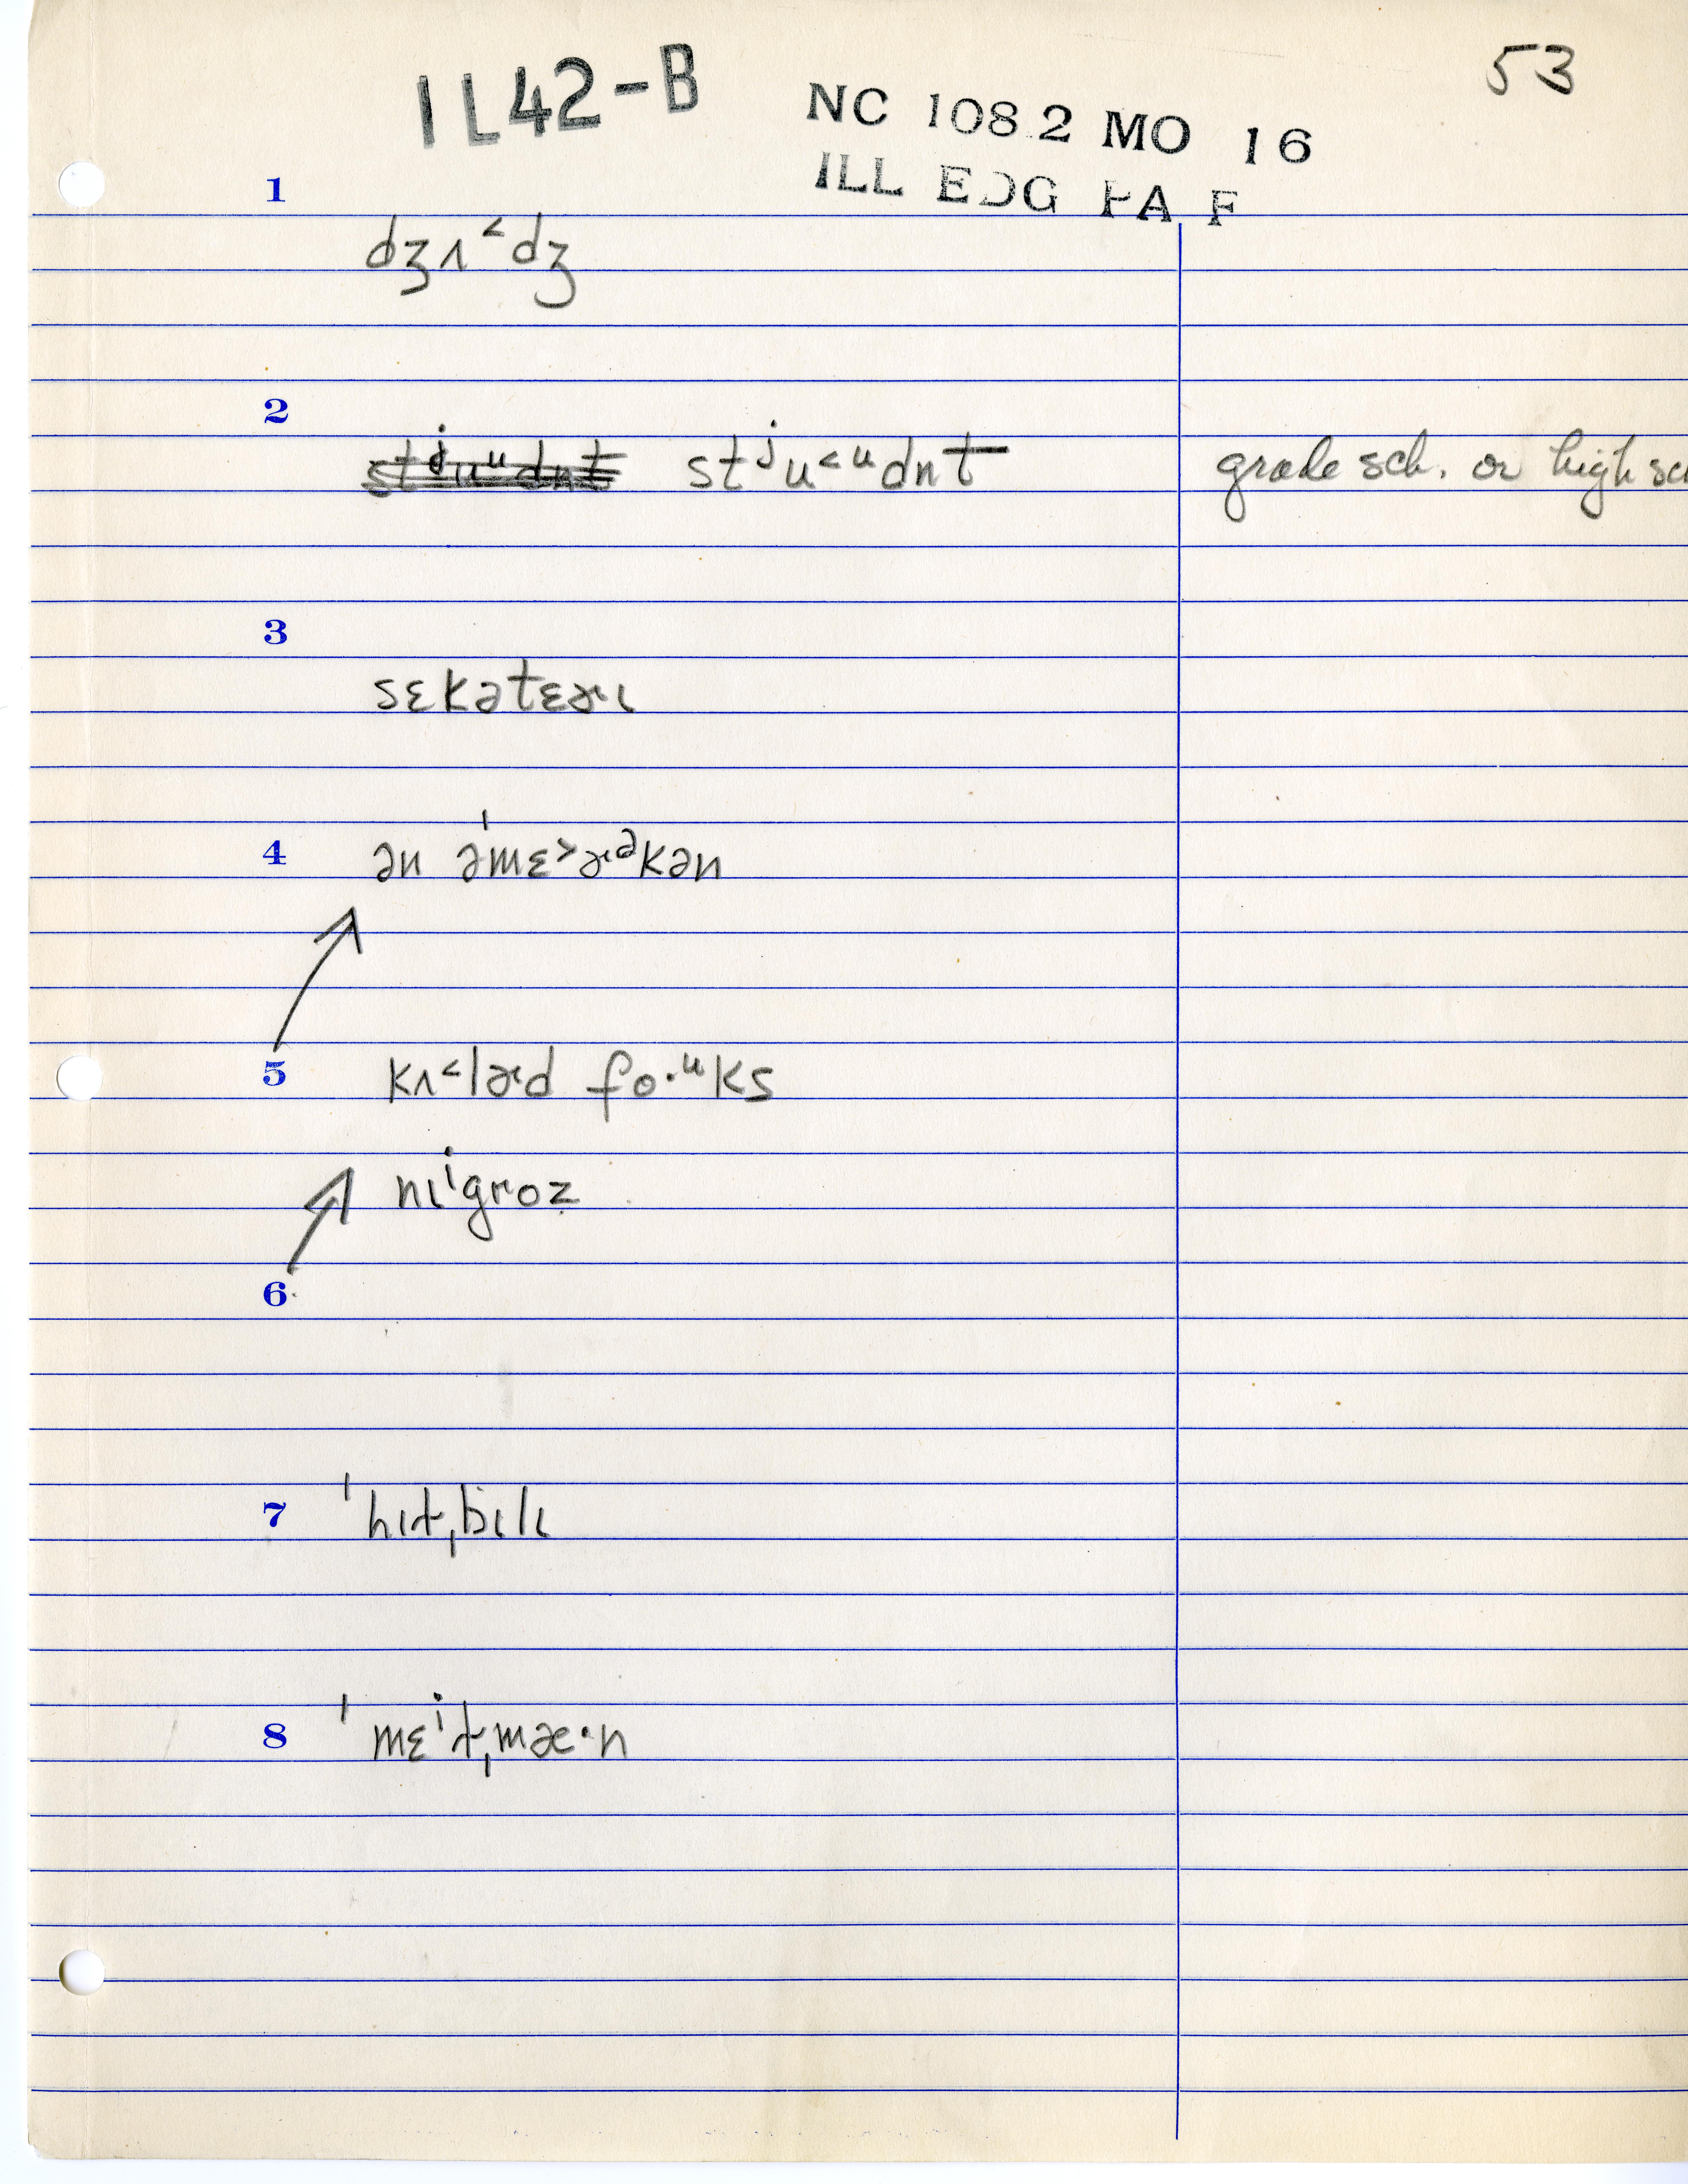 53
IL42-B
NC 108.2 MO 16
ILL EDG PA F
1
dʒʌ˂dʒ
2
stʲuᵘdnt stʲu˂ᵘdnt grade sch. or high sc
3
sɛkətɛɚɩ
4 ən ə'mɛ˃ɚᵊkən
5 kʌ˂lɚd fo·ᵘks
nɩⁱgroz
6
7 'hɪt,bɩlɩ
8 'mɛⁱt,mæ·n